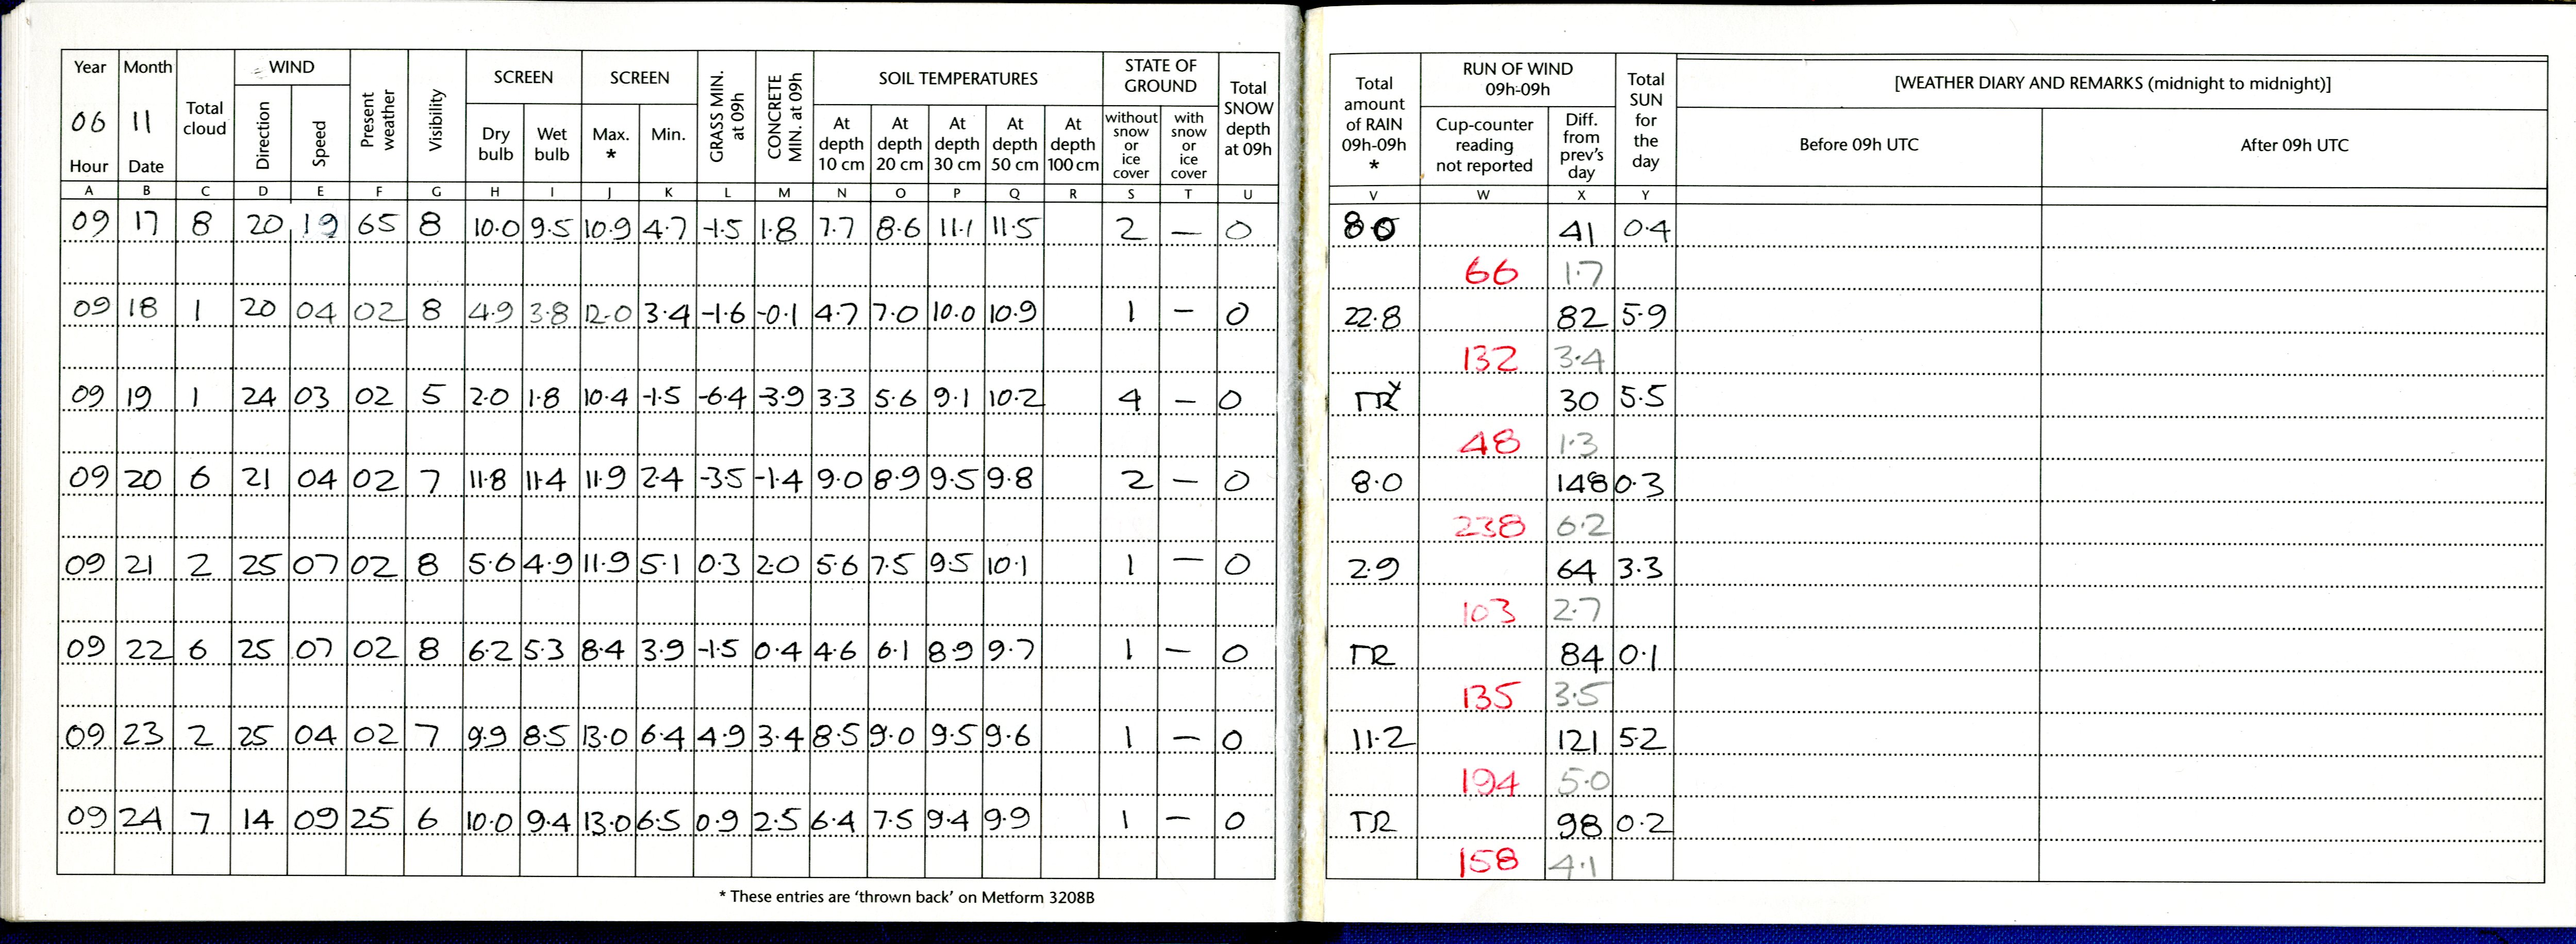 Year Month Total cloud WIND Present weather Visibility SCREEN SCREEN GRASS MIN. at 09h CONCRETE MIN. at 09h SOIL TEMPERATURES STATE OF GROUND Total SNOW depth at 09h Total amount of RAIN 09h-09h * RUN OF WIND 09h-09h Total SUN for the day [WEATHER DIARY AND REMARKS (midnight to midnight)]
06 11 Direction Speed Dry bulb Wet bulb Max. * Min. At depth 10 cm At depth 20 cm At depth 30 cm At depth 50 cm At depth 100 cm without snow or ice cover with snow or ice cover Cup-counter reading not reported Diff. from prev's day Before 09h UTC After 09h UTC
Hour Date
A B C D E F G H I J K L M N O P Q R S T U V W X Y
09 17 8 20 19 65 8 10.0 9.5 10.9 4.7 -1.5 1.8 7.7 8.6 11.1 11.5 2 — 0 8.0 41 0.4
66 1.7
09 18 1 20 04 02 8 4.9 3.8 12.0 3.4 -1.6 -0.1 4.7 7.0 10.0 10.9 1 — 0 22.8 82 5.9
132 3.4
09 19 1 24 03 02 5 2.0 1.8 10.4 -1.5 -6.4 -3.9 3.3 5.6 9.1 10.2 4 — 0 TR 30 5.5
48 1.3
09 20 6 21 04 02 7 11.8 11.4 11.9 2.4 -3.5 -1.4 9.0 8.9 9.5 9.8 2 — 0 8.0 148 0.3
238 6.2
09 21 2 25 07 02 8 5.6 4.9 11.9 5.1 0.3 2.0 5.6 7.5 9.5 10.1 1 — 0 2.9 64 3.3
103 2.7
09 22 6 25 07 02 8 6.2 5.3 8.4 3.9 -1.5 0.4 4.6 6.1 8.9 9.7 1 — 0 TR 84 0.1
135 3.5
09 23 2 25 04 02 7 9.9 8.5 13.0 6.4 4.9 3.4 8.5 9.0 9.5 9.6 1 — 0 11.2 121 5.2
194 5.0
09 24 7 14 09 25 6 10.0 9.4 13.0 6.5 0.9 2.5 6.4 7.5 9.4 9.9 1 — 0 TR 98 0.2
158 4.1
* These entries are 'thrown back' on Metform 3208B